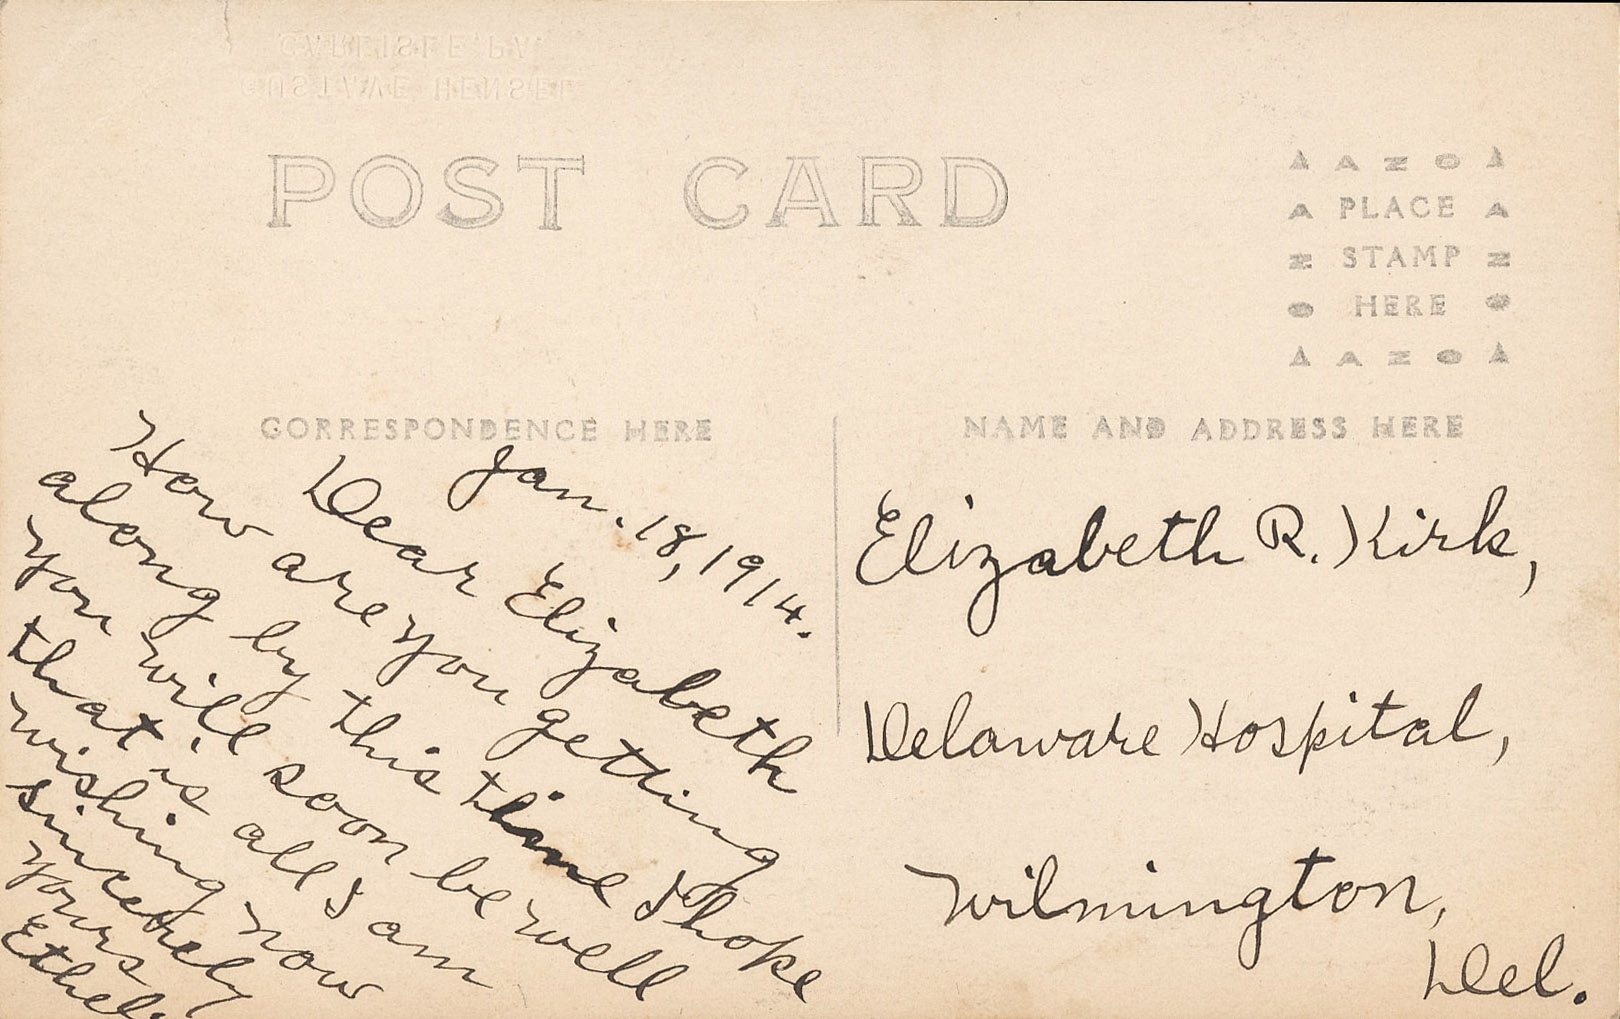 CARLISLE, PA.
GUSTAVE HENSEL
POST CARD
AZO
PLACE
STAMP
HERE
AZO
CORRESPONDENCE HERE
NAME AND ADDRESS HERE
Jan. 18, 1914.
Dear Elizabeth
How are you getting
along by this time I hope
you will soon be well
that is all I am
wishing now
sincerely
yours
Ethel.
Elizabeth R. Kirk,
Delaware Hospital,
Wilmington,
Del.